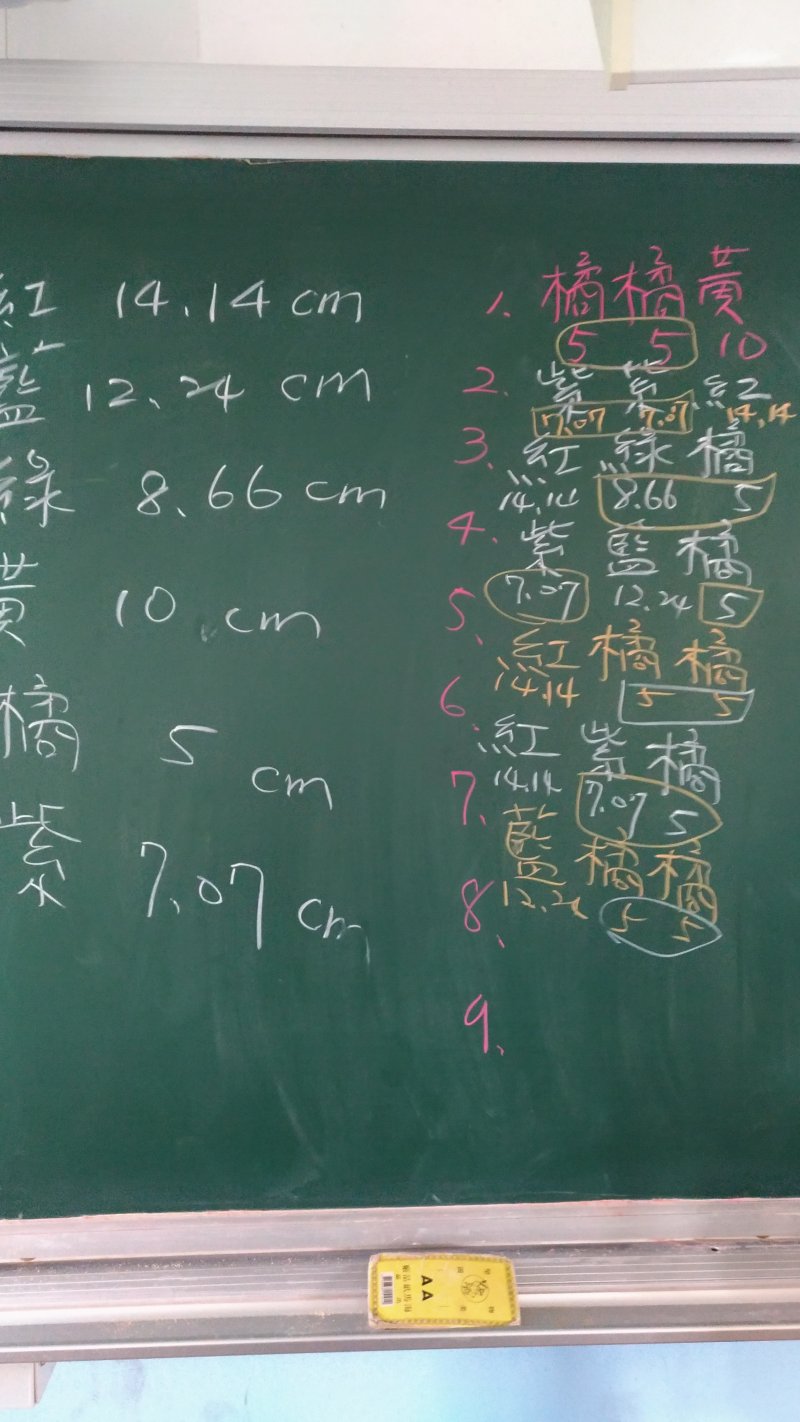 紅 14.14 cm
藍 12.24 cm
綠 8.66 cm
黃 10 cm
橘 5 cm
紫 7.07 cm
1. 橘 橘 黃
5 5 10
2. 紫 紫 紅
7.07 7.07 14.14
3. 紅 綠 橘
14.14 8.66 5
4. 紫 藍 橘
7.07 12.24 5
5. 紅 橘 橘
14.14 5 5
6. 紅 紫 橘
14.14 7.07 5
7. 藍 橘 橘
12.24 5 5
8.
9.
AA